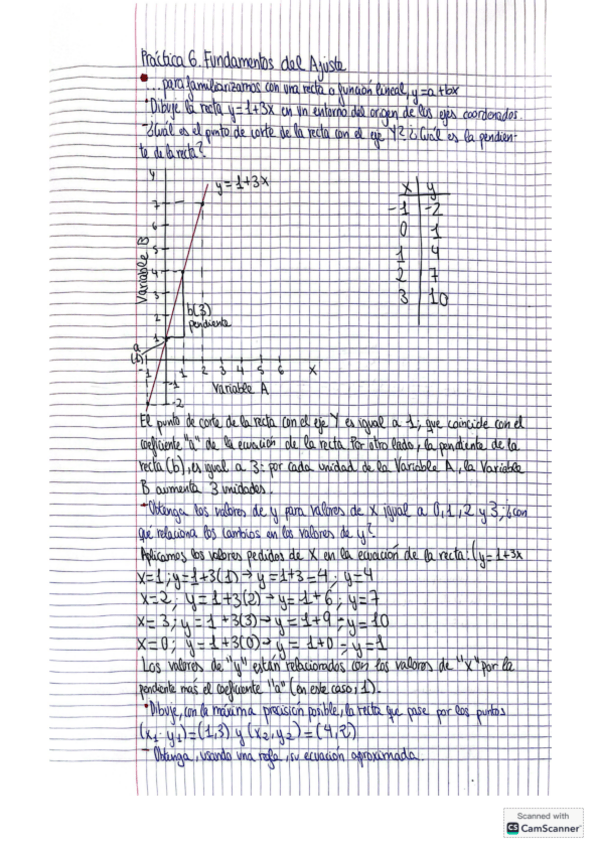 Práctica 6. Fundamentos del Ajuste
... para familiarizarnos con una recta o función lineal, y=a+bx
Dibuje la recta y=1+3x en un entorno del origen de los ejes coordenados.
¿Cuál es el punto de corte de la recta con el eje Y? ¿Cuál es la pendien-
te de la recta?
y
y=1+3x
7
6
5
4
3
2
1
Variable B
b(3)
pendiente
a
(1)
-1 1 2 3 4 5 6 X
-1
-2
Variable A
x y
-1 -2
0 1
1 4
2 7
3 10
El punto de corte de la recta con el eje Y es igual a 1, que coincide con el
coeficiente "a" de la ecuación de la recta. Por otro lado, la pendiente de la
recta (b), es igual a 3: por cada unidad de la Variable A, la Variable
B aumenta 3 unidades.
Obtenga los valores de y para valores de x igual a 0,1,2 y 3, ¿con
qué relaciona los cambios en los valores de y?
Aplicamos los valores pedidos de X en la ecuación de la recta: (y=1+3x
X=1; y=1+3(1)→y=1+3=4; y=4
X=2; y=1+3(2)→y=1+6; y=7
X=3; y=1+3(3)→y=1+9; y=10
X=0; y=1+3(0)→y=1+0; y=1
Los valores de "y" están relacionados con los valores de "x" por la
pendiente más el coeficiente "a" (en este caso, 1).
Dibuje, con la máxima precisión posible, la recta que pase por los puntos
(x1, y1)=(1,3) y (x2, y2)=(4,2)
- Obtenga, usando una regla, su ecuación aproximada.
Scanned with
CS CamScanner